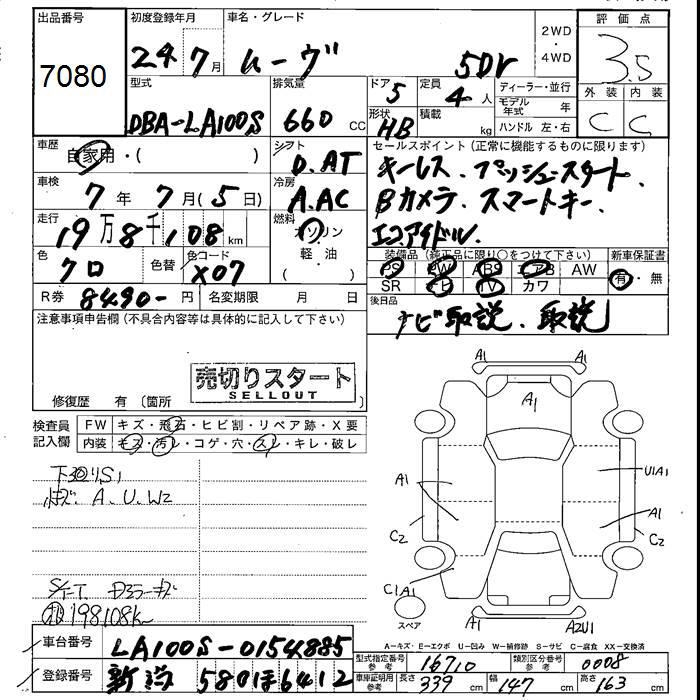 出品番号 初度登録年月 車名・グレード 2WD・4WD 評価点
7080 24 7月 ムーヴ 5Dr 3.5
型式 排気量 ドア 5 定員 4人 ディーラー・並行 外装 内装
DBA-LA100S 660 CC 形状 HB 積載 kg モデル年式 年 C C
ハンドル 左・右
車歴 自家用・( ) シフト D.AT セールスポイント(正常に機能するものに限ります)
車検 7年 7月(5日) 冷房 A.AC キーレス. プッシュスタート.
走行 19万8千108km 燃料 ガソリン・軽油 ( ) Bカメラ. スマートキー.
エコアイドル.
色 クロ 色替 色コード X07 装備品(純正品に限り○をつけて下さい) 新車保証書
PS PW ABS エアB AW 有・無
R券 8490-円 名変期限 月 日 SR ナビ TV カワ
注意事項申告欄(不具合内容等は具体的に記入して下さい) 後日品
ナビ取説. 取説
売切りスタート
SELLOUT
修復歴 有(箇所
検査員記入欄 FW キズ・飛石・ヒビ割・リペア跡・X要
内装 キズ・汚レ・コゲ・穴・スレ・キレ・破レ
A1 A1
A1
A1 U1A1
A1
C2 C2
C1A1
スペア A1 A2U1
A.U.W2
198108K
A-キズ・E-エクボ U-凹み W-補修跡 S-サビ C-腐食 XX-交換済
車台番号 LA100S-0154885
型式指定番号 参考 16710 類別区分番号 参考 0008
登録番号 580 6412
車庫証明用 参考 長さ 339cm 幅 147cm 高さ 163cm